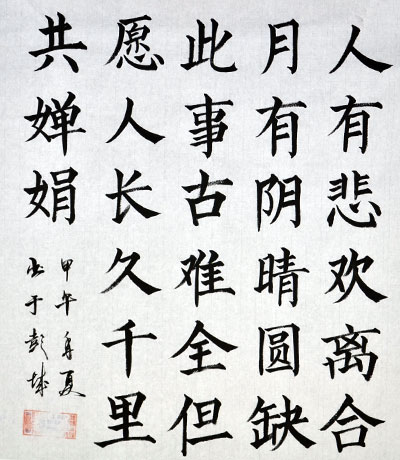 人有悲欢离合
月有阴晴圆缺
此事古难全但
愿人长久千里
共婵娟
甲午年夏
书于彭城